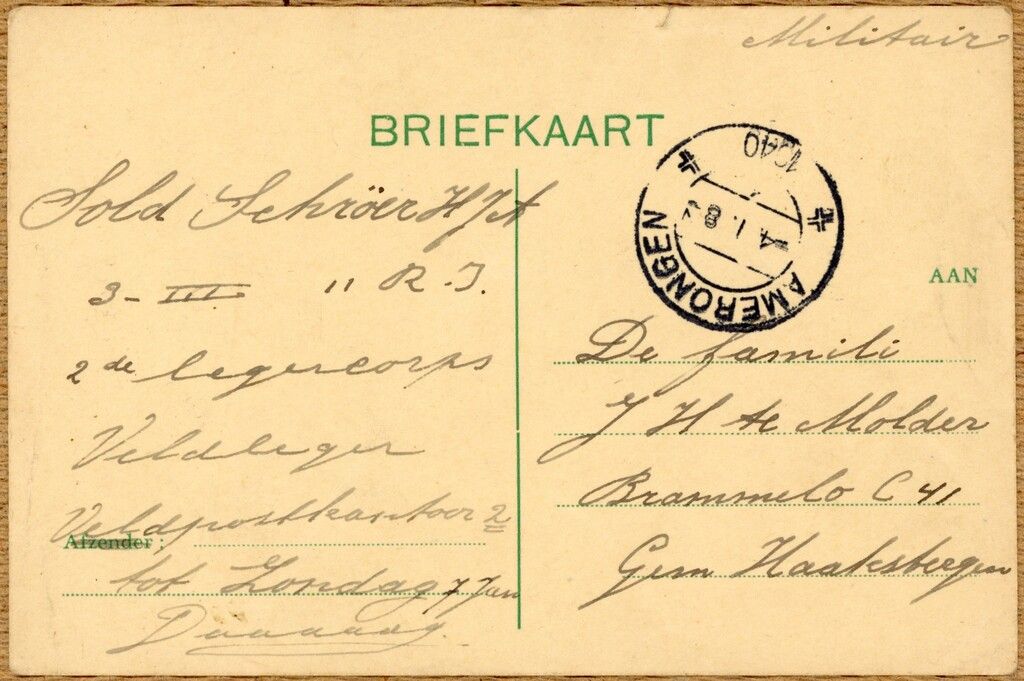 Militair
BRIEFKAART
Sold Schröer H J A
3 - III 11 R. I.
2de legercorps
Veldleger
Veldpostkantoor 2
Afzender:
tot Zondag 7 Jan
Daaaaag.
AMERONGEN
4. I. 8
1940
AAN
De famili
J H te Molder
Brammelo C 41
Gem Haaksbergen